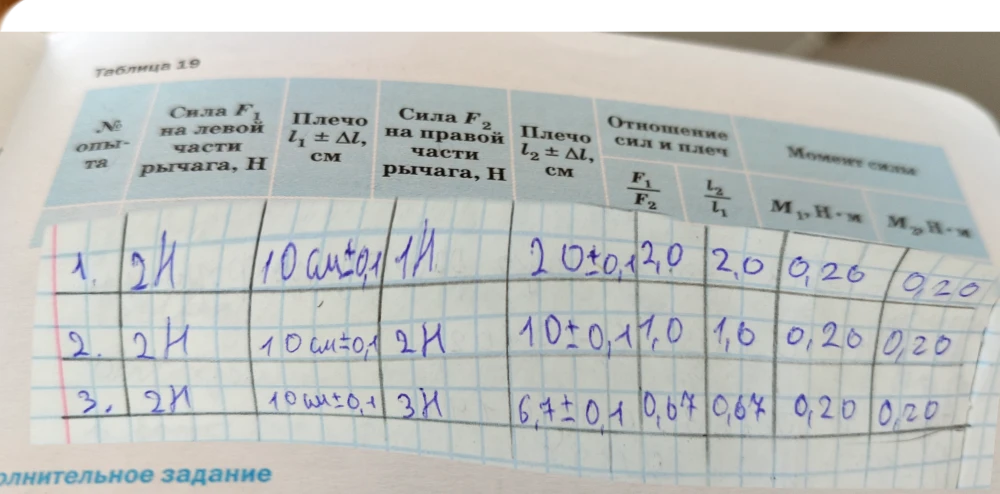 Таблица 19
№ опы- та
Сила F₁ на левой части рычага, Н
Плечо l₁ ± Δl, см
Сила F₂ на правой части рычага, Н
Плечо l₂ ± Δl, см
Отношение сил и плеч
F₁/F₂
l₂/l₁
Момент силы
M₁, Н·м
M₂, Н·м
1. 2Н 10 см±0,1 1Н 20±0,1 2,0 2,0 0,20 0,20
2. 2Н 10 см±0,1 2Н 10±0,1 1,0 1,0 0,20 0,20
3. 2Н 10 см±0,1 3Н 6,7±0,1 0,67 0,67 0,20 0,20
олнительное задание